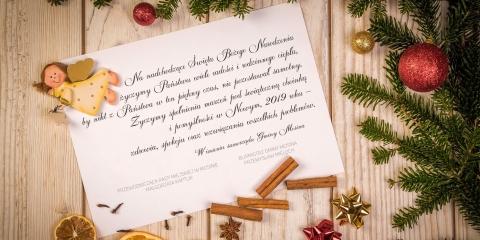 Na nadchodzące Święta Bożego Narodzenia
życzymy Państwu wiele radości i rodzinnego ciepła,
by nikt z Państwa w ten piękny czas, nie pozostawał samotny.
Życzymy spełnienia marzeń pod świąteczną choinką
i pomyślności w Nowym, 2019 roku –
zdrowia, spokoju oraz rozwiązania wszelkich problemów.
W imieniu samorządu Gminy Mosina
PRZEWODNICZĄCA RADY MIEJSKIEJ W MOSINIE
MAŁGORZATA KAPTUR
BURMISTRZ GMINY MOSINA
PRZEMYSŁAW MIELOCH